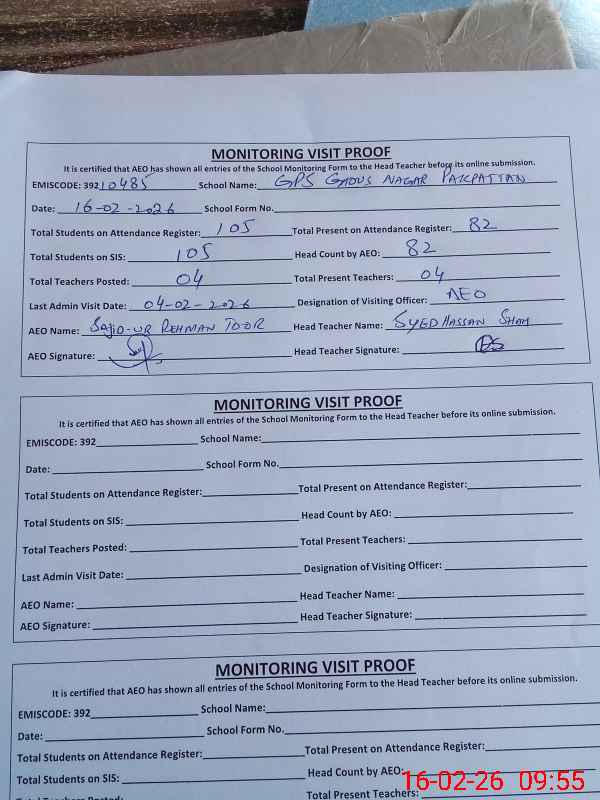 MONITORING VISIT PROOF
It is certified that AEO has shown all entries of the School Monitoring Form to the Head Teacher before its online submission.
EMISCODE: 39210485 School Name: GPS GHOUS NAGAR PAKPATTAN
Date: 16-02-2026 School Form No.
Total Students on Attendance Register: 105 Total Present on Attendance Register: 82
Total Students on SIS: 105 Head Count by AEO: 82
Total Teachers Posted: 04 Total Present Teachers: 04
Last Admin Visit Date: 04-02-2026 Designation of Visiting Officer: AEO
AEO Name: SAJID-UR REHMAN TOOR Head Teacher Name: SYED HASSAN SHAH
AEO Signature: Head Teacher Signature:
MONITORING VISIT PROOF
It is certified that AEO has shown all entries of the School Monitoring Form to the Head Teacher before its online submission.
EMISCODE: 392 School Name:
Date: School Form No.
Total Students on Attendance Register: Total Present on Attendance Register:
Total Students on SIS: Head Count by AEO:
Total Teachers Posted: Total Present Teachers:
Last Admin Visit Date: Designation of Visiting Officer:
AEO Name: Head Teacher Name:
AEO Signature: Head Teacher Signature:
MONITORING VISIT PROOF
It is certified that AEO has shown all entries of the School Monitoring Form to the Head Teacher before its online submission.
EMISCODE: 392 School Name:
Date: School Form No.
Total Students on Attendance Register: Total Present on Attendance Register:
Total Students on SIS: Head Count by AEO:
Total Teachers Posted:
16-02-26 09:55